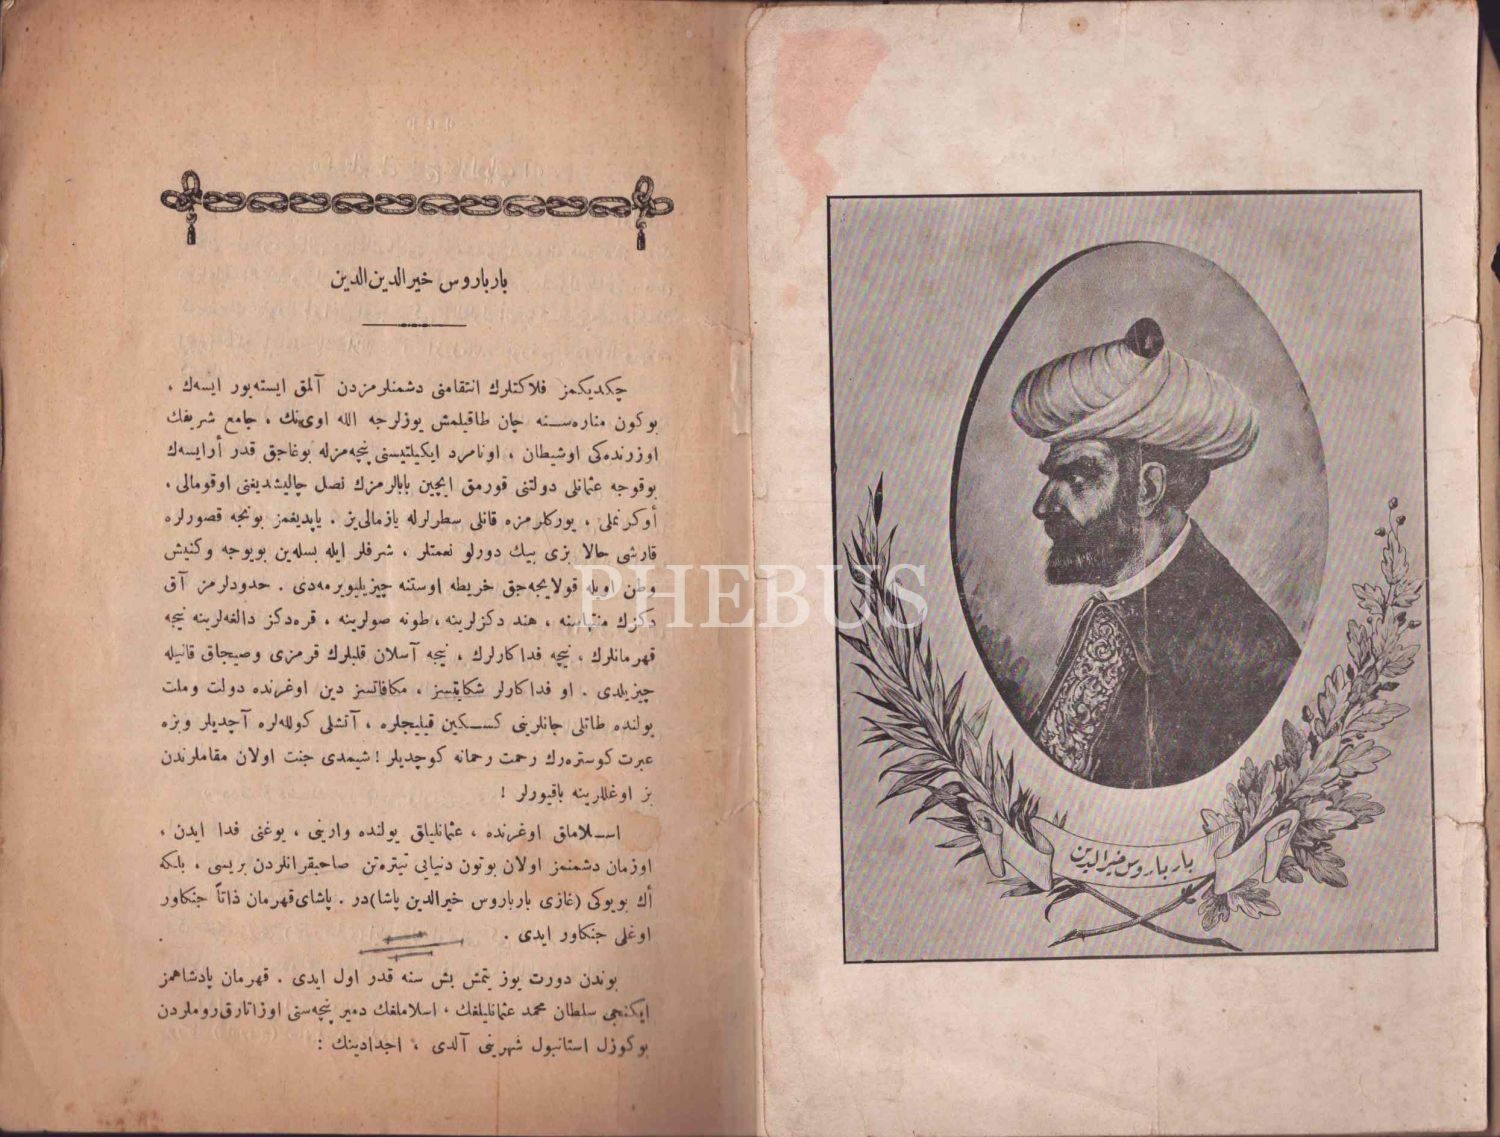 بارباروس خیرالدین الدین
چكدیكمز فلاكتلرك انتقامنی دشمنلرمزدن آلمق ایسته‌یور ایسه‌ك ،
بوكون مناره‌سنه چان طاقیلمش یوزلرجه الله اوینك ، جامع شریفك
اوزرنده‌كی اوشیطان ، اونامرد ایكیلتیسنی پنچه‌مزله بوغاجق قدر أرایسه‌ك
بوقوجه عثمانلی دولتنی قورمق ایچین بابالرمزك نصل چالیشدیغنی اوقومالی ،
أوكرنملی ، یوركلرمزه قانلی سطرلرله یازمالی‌یز . یاپدیغمز بونجه قصورلره
قارشی حالا بزی بیك دورلو نعمتلر ، شرفلر ایله بسله‌ین بویوجه وكنیش
وطن اویله قولایجه‌جق خریطه اوستنه چیزیلیویرمه‌دی . حدودلرمز آق
دكزك منتهاسنه ، هند دكزلرینه ، طونه صولرینه ، قره‌دكز دالغه‌لرینه نیجه
قهرمانلرك ، نیجه فداكارلرك ، نیجه آسلان قلبلرك قرمزی وصیجاق قانیله
چیزیلدی . او فداكارلر شكایتسز ، مكافاتسز دین اوغرنده دولت وملت
یولنده طاتلی جانلرینی كسكین قیلیجلره ، آتشلی كولله‌لره آچدیلر وبزه
عبرت كوستره‌رك رحمت رحمانه كوچدیلر ! شیمدی جنت اولان مقاملرندن
بز اوغللرینه باقیورلر !
اسلاملق اوغرنده ، عثمانلیلق یولنده وارینی ، یوغنی فدا ایدن ،
اوزمان دشمنمز اولان بوتون دنیایی تیتره‌تن صاحبقرانلردن بریسی ، بلكه
أك بویوكی (غازی بارباروس خیرالدین پاشا)در . پاشای‌قهرمان ذاتاً جنكاور
اوغلی جنكاور ایدی .
بوندن دورت یوز یتمش بش سنه قدر اول ایدی . قهرمان پادشاهمز
ایكنجی سلطان محمد عثمانلیلغك ، اسلاملغك دمیر پنچه‌سنی اوزاتارق‌روملردن
بوكوزل استانبول شهرینی آلدی ، اجدادینك :
بارباروس خیرالدین
PHEBUS